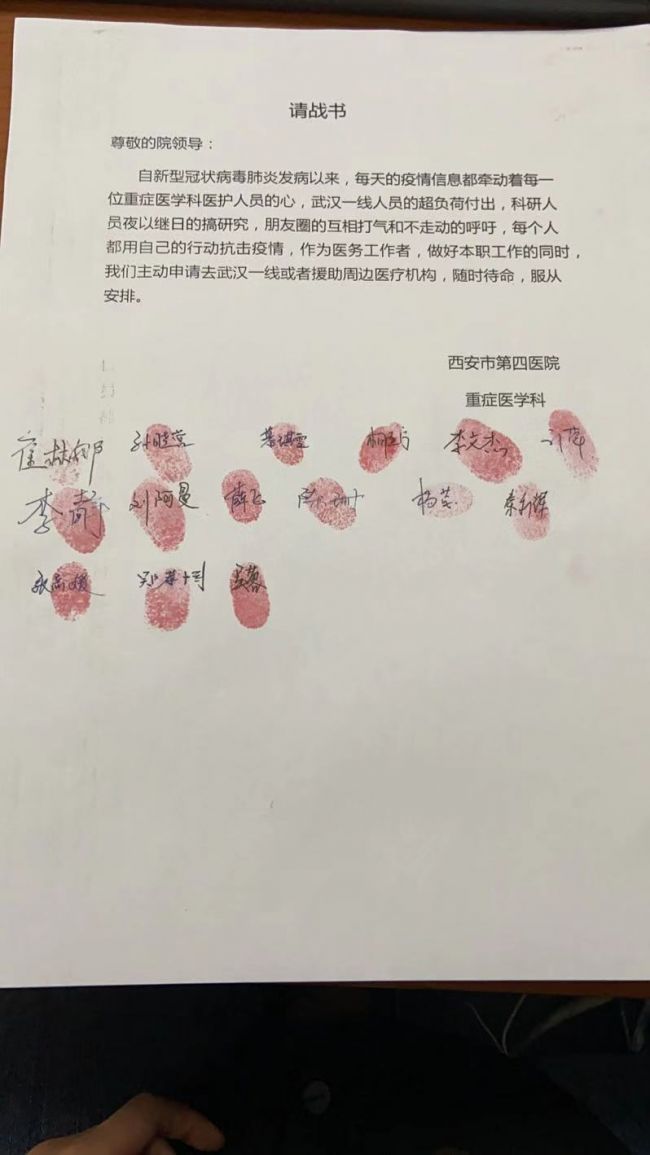 请战书
尊敬的院领导：
自新型冠状病毒肺炎发病以来，每天的疫情信息都牵动着每一
位重症医学科医护人员的心，武汉一线人员的超负荷付出，科研人
员夜以继日的搞研究，朋友圈的互相打气和不走动的呼吁，每个人
都用自己的行动抗击疫情，作为医务工作者，做好本职工作的同时，
我们主动申请去武汉一线或者援助周边医疗机构，随时待命，服从
安排。
西安市第四医院
重症医学科
李文杰
李静 刘阿曼